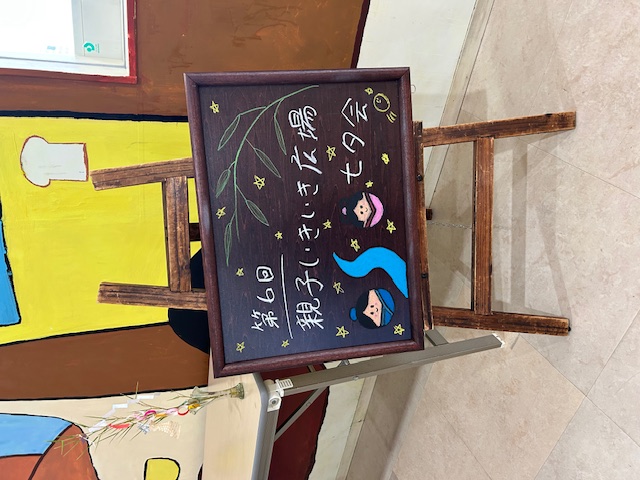 第6回
親子いきいき広場
七夕会